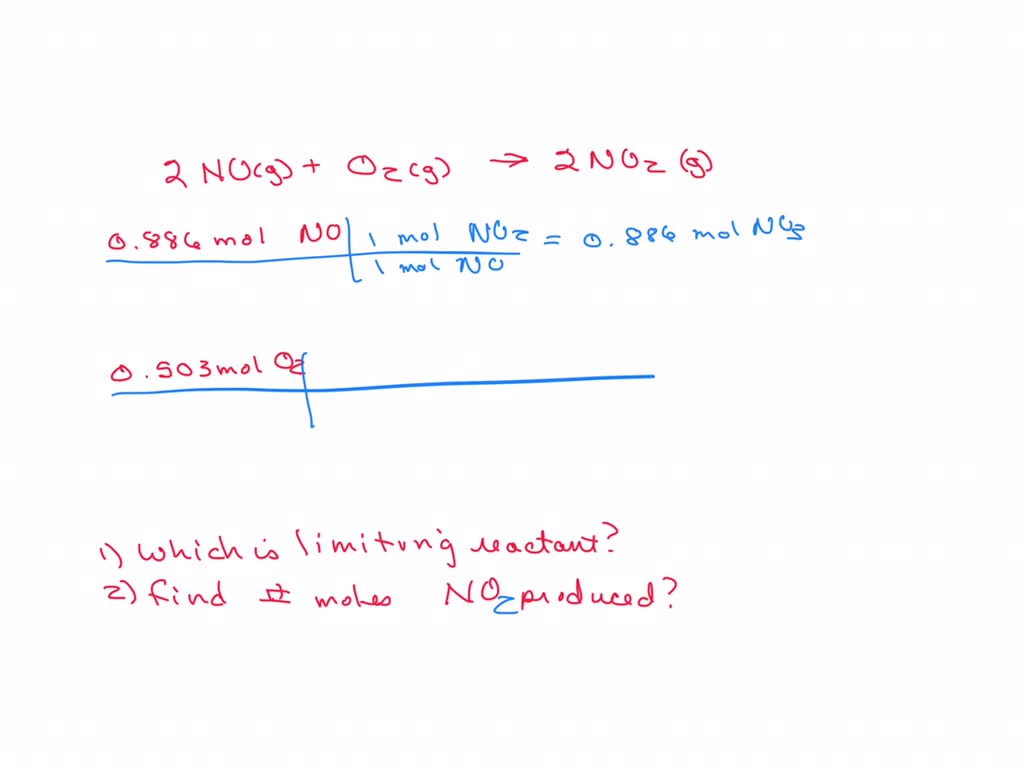 2 NO(g) + O2(g) → 2 NO2 (g)
0.886 mol NO | 1 mol NO2 = 0.886 mol NO2
1 mol NO
0.503 mol O2
1) which is limiting reactant?
2) find # moles NO2 produced?